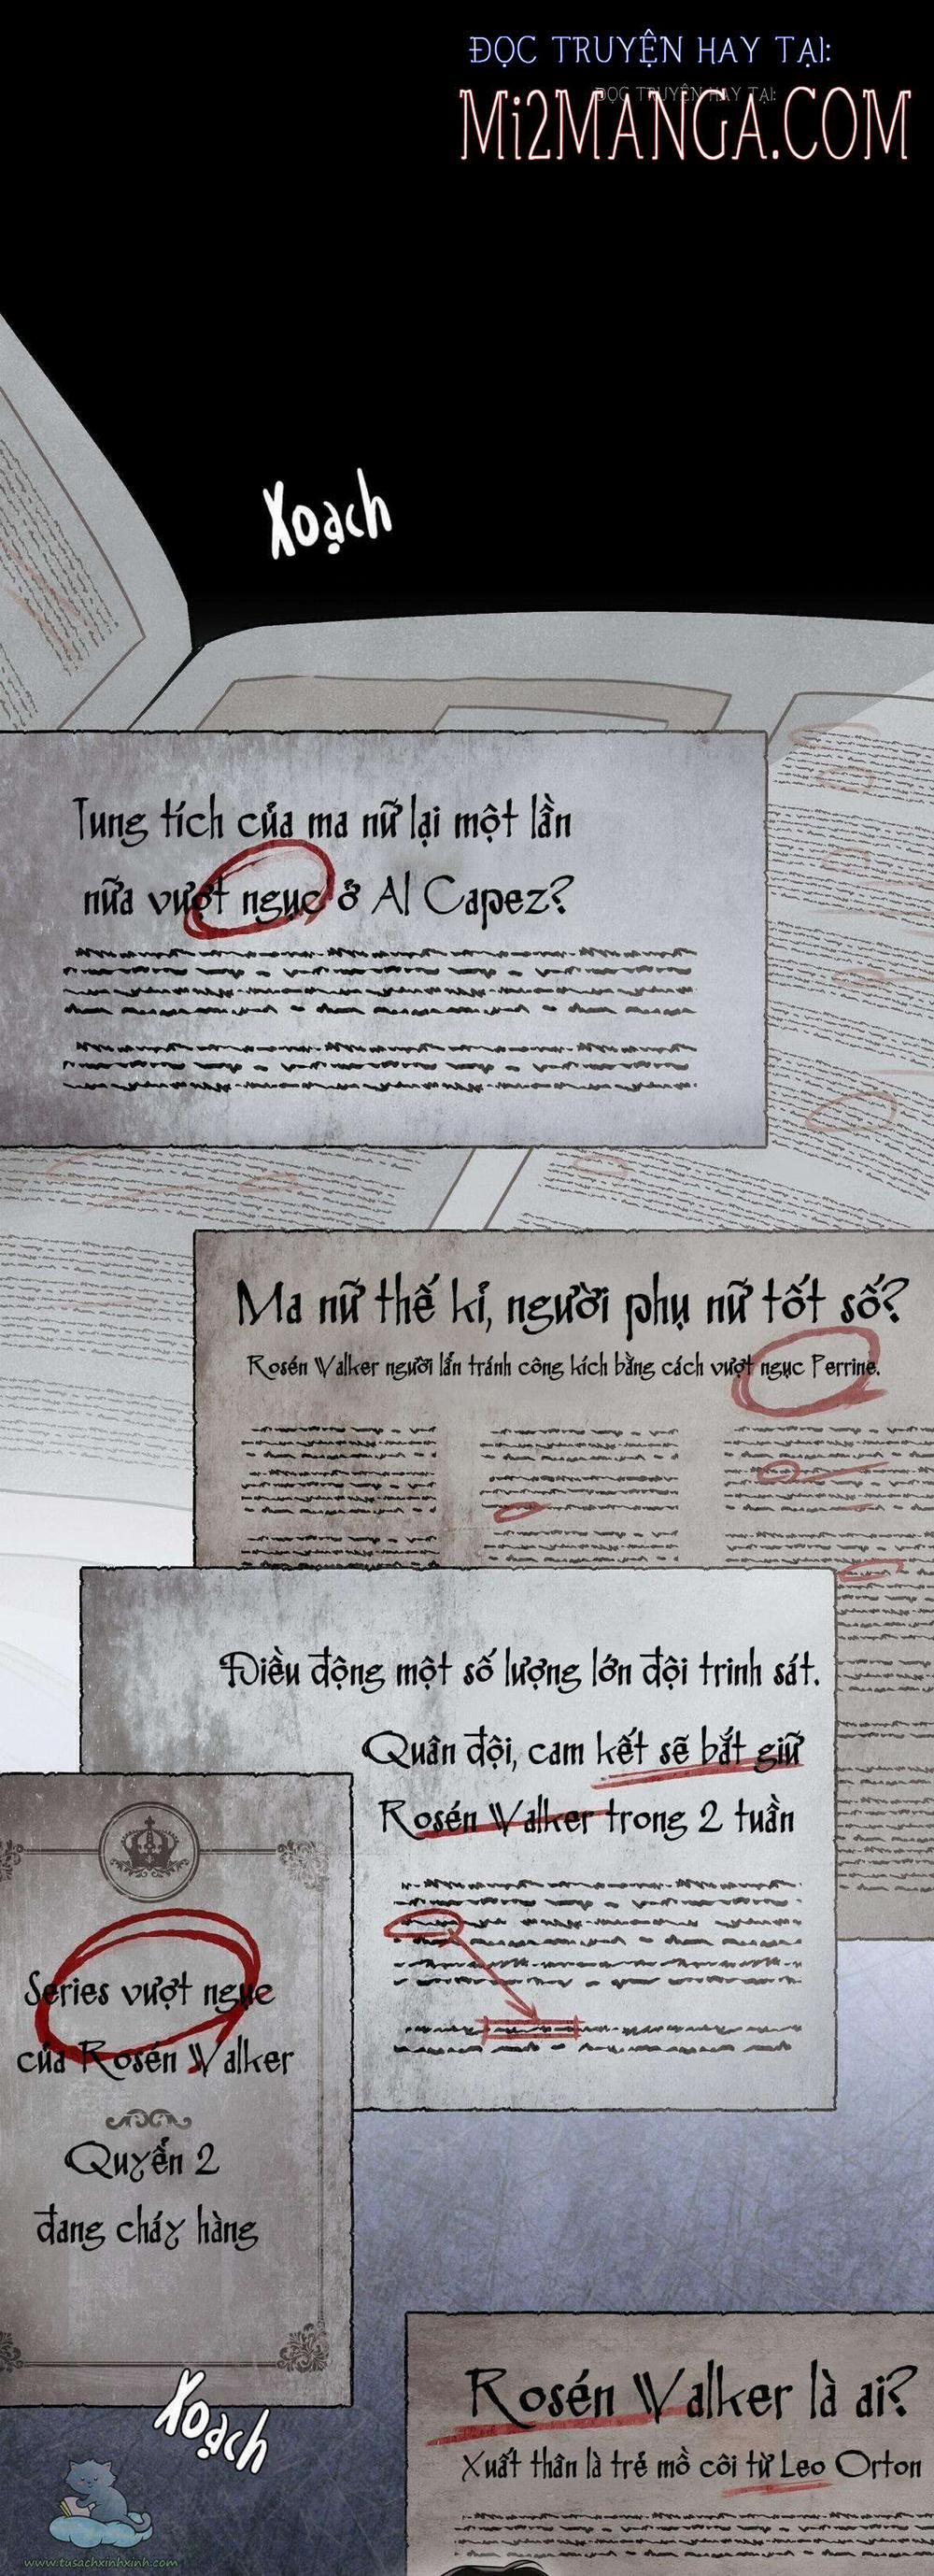 ĐỌC TRUYỆN HAY TẠI:
ĐỌC TRUYỆN HAY TẠI:
Mi2MANGA.COM
Xoạch
Tung tích của ma nữ lại một lần
nữa vượt ngục ở Al Capez?
Ma nữ thế kỉ, người phụ nữ tốt số?
Rosén Walker người lẩn tránh công kích bằng cách vượt ngục Perrine.
Điều động một số lượng lớn đội trinh sát.
Quân đội, cam kết sẽ bắt giữ
Rosén Walker trong 2 tuần
Series vượt ngục
của Rosén Walker
Quyển 2
đang cháy hàng
Xoạch
Rosén Walker là ai?
Xuất thân là trẻ mồ côi từ Leo Orton
www.tusachxinhxinh.com